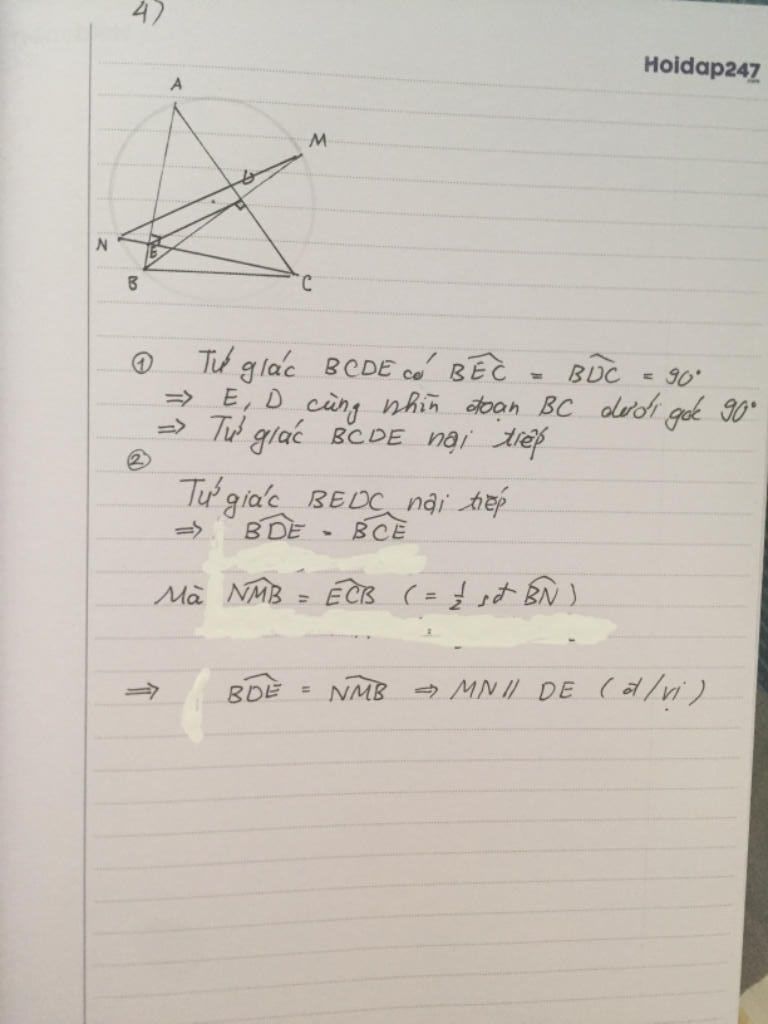 4)
Hoidap247
.com
A
M
D
N
E
B
C
① Tứ giác BCDE có BÊC = BD̂C = 90°
=> E, D cùng nhìn đoạn BC dưới góc 90°
=> Tứ giác BCDE nội tiếp
②
Tứ giác BEDC nội tiếp
=> BD̂E = BĈE
Mà NM̂B = EĈB (= ½ sđ BN̂)
=> BD̂E = NM̂B => MN // DE (đ/vị)